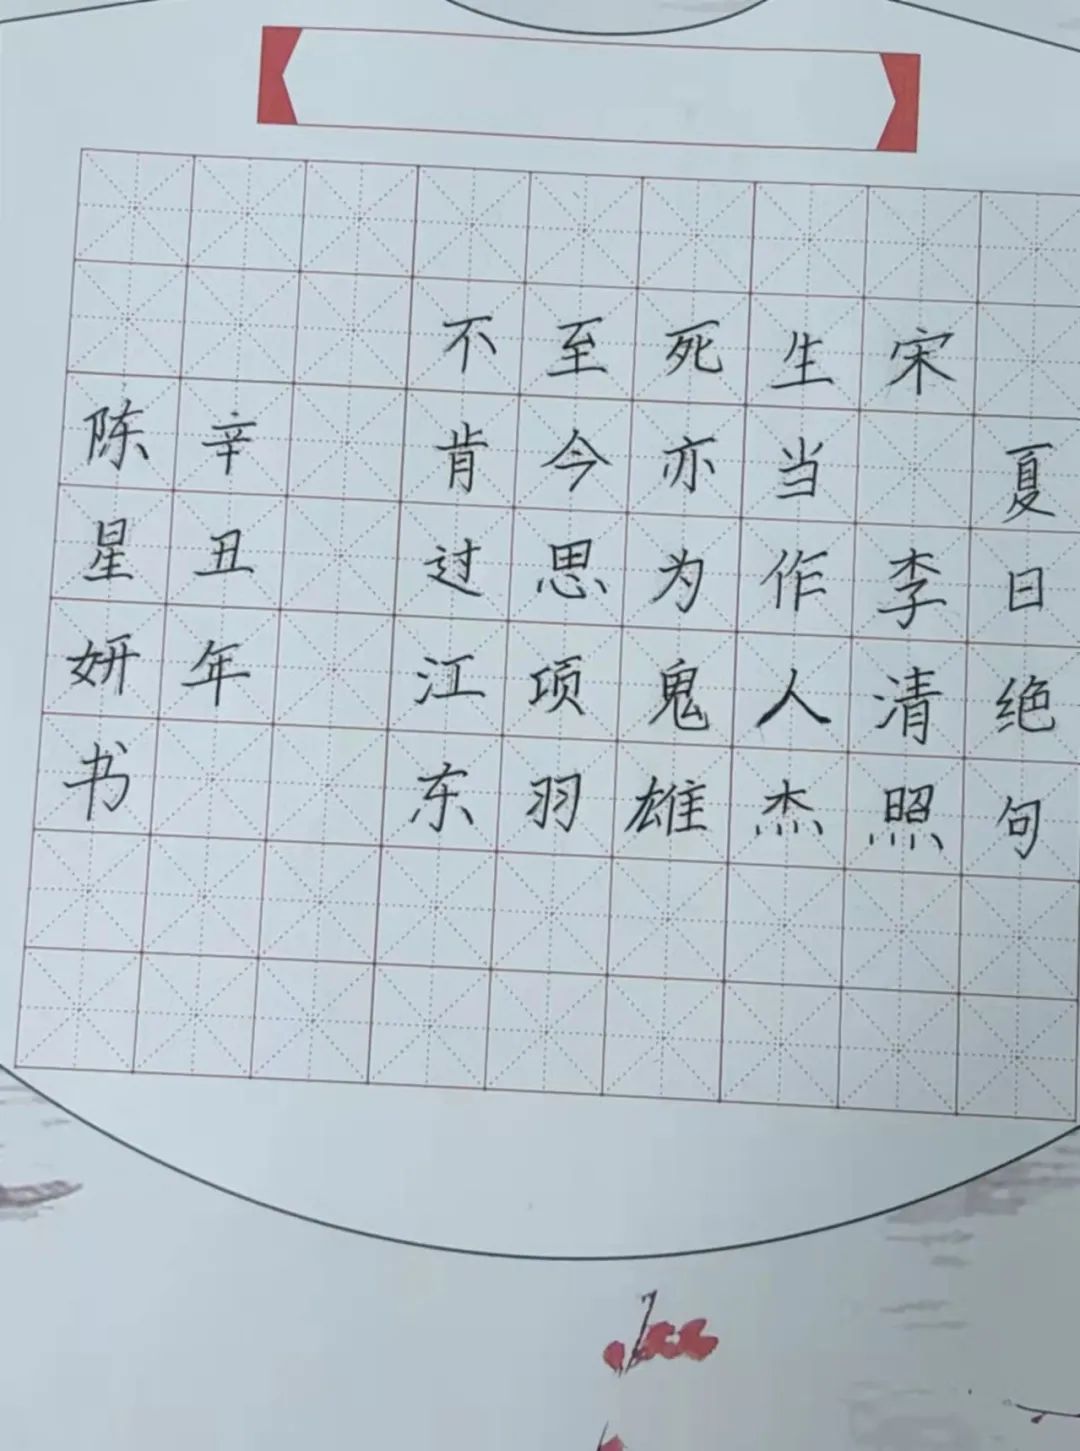 夏日绝句
宋 李清照
生当作人杰
死亦为鬼雄
至今思项羽
不肯过江东
辛丑年
陈星妍书